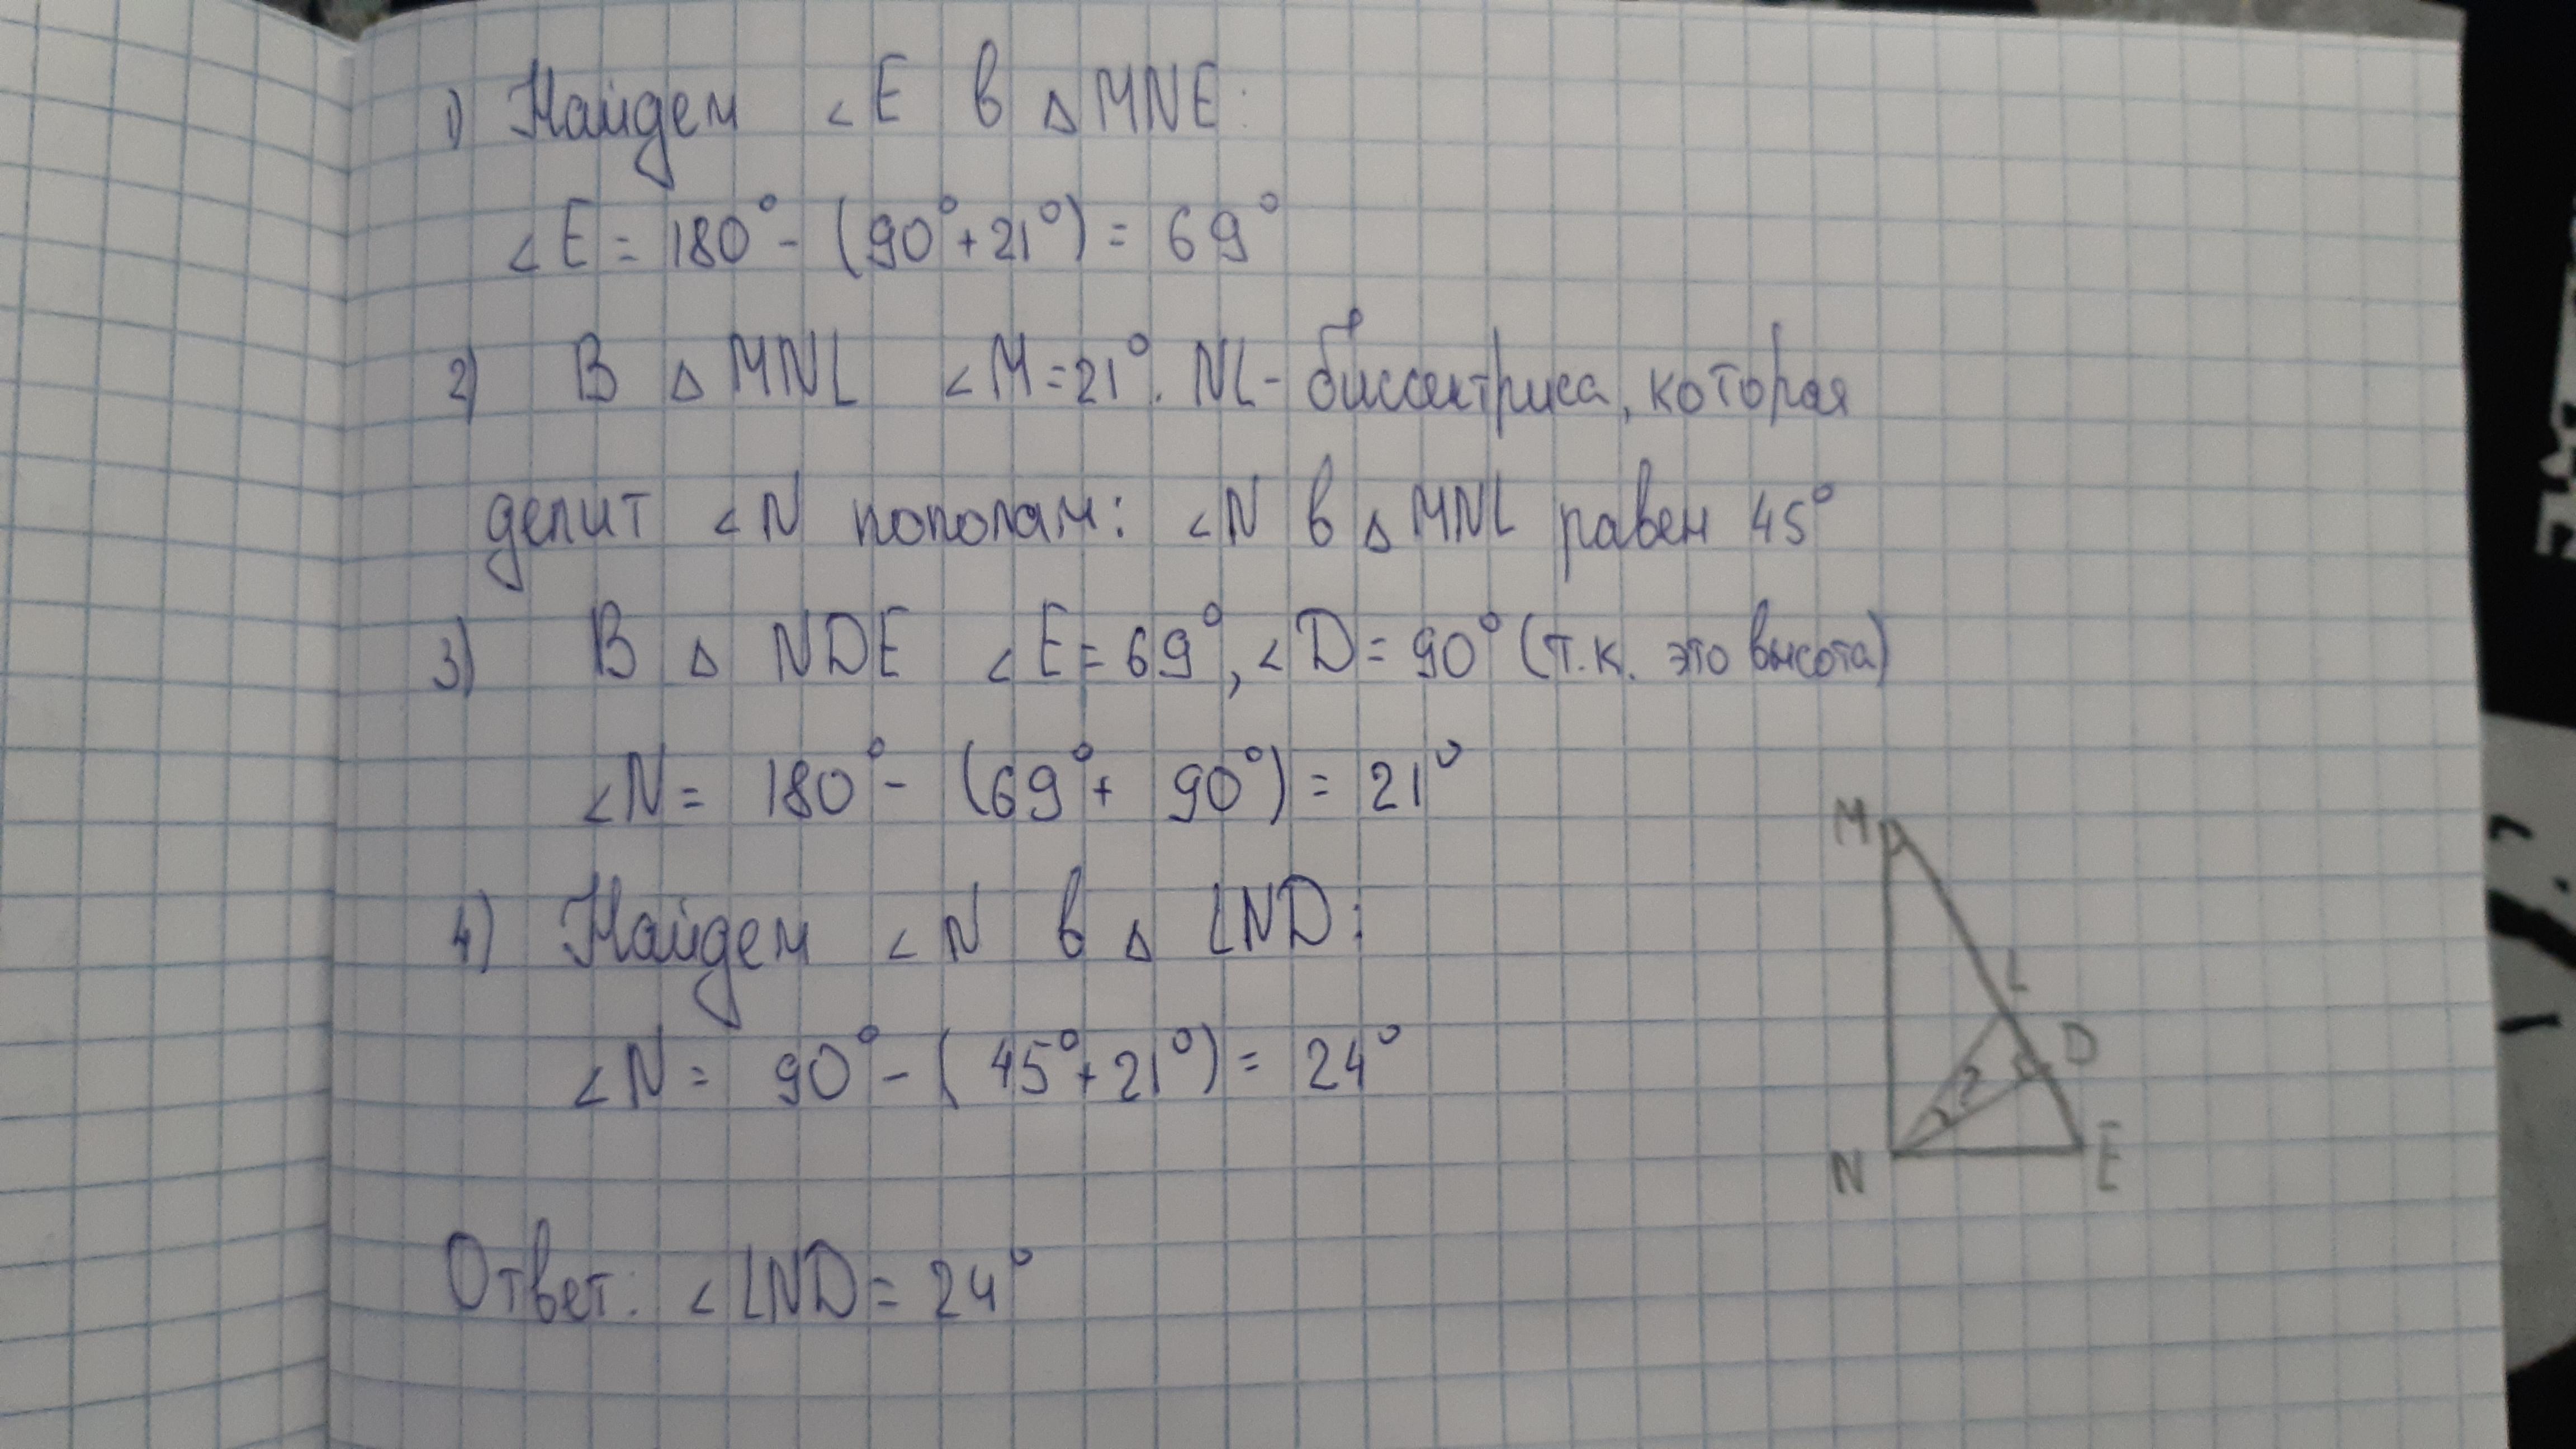 1) Найдем <E в △MNE:
<E = 180° - (90° + 21°) = 69°
2) В △MNL <M = 21°. NL - биссектриса, которая
делит <N пополам: <N в △MNL равен 45°
3) В △NDE <E = 69°, <D = 90° (т.к. это высота)
<N = 180° - (69° + 90°) = 21°
4) Найдем <N в △LND:
<N = 90° - (45° + 21°) = 24°
Ответ: <LND = 24°
M
L
D
?
N
E